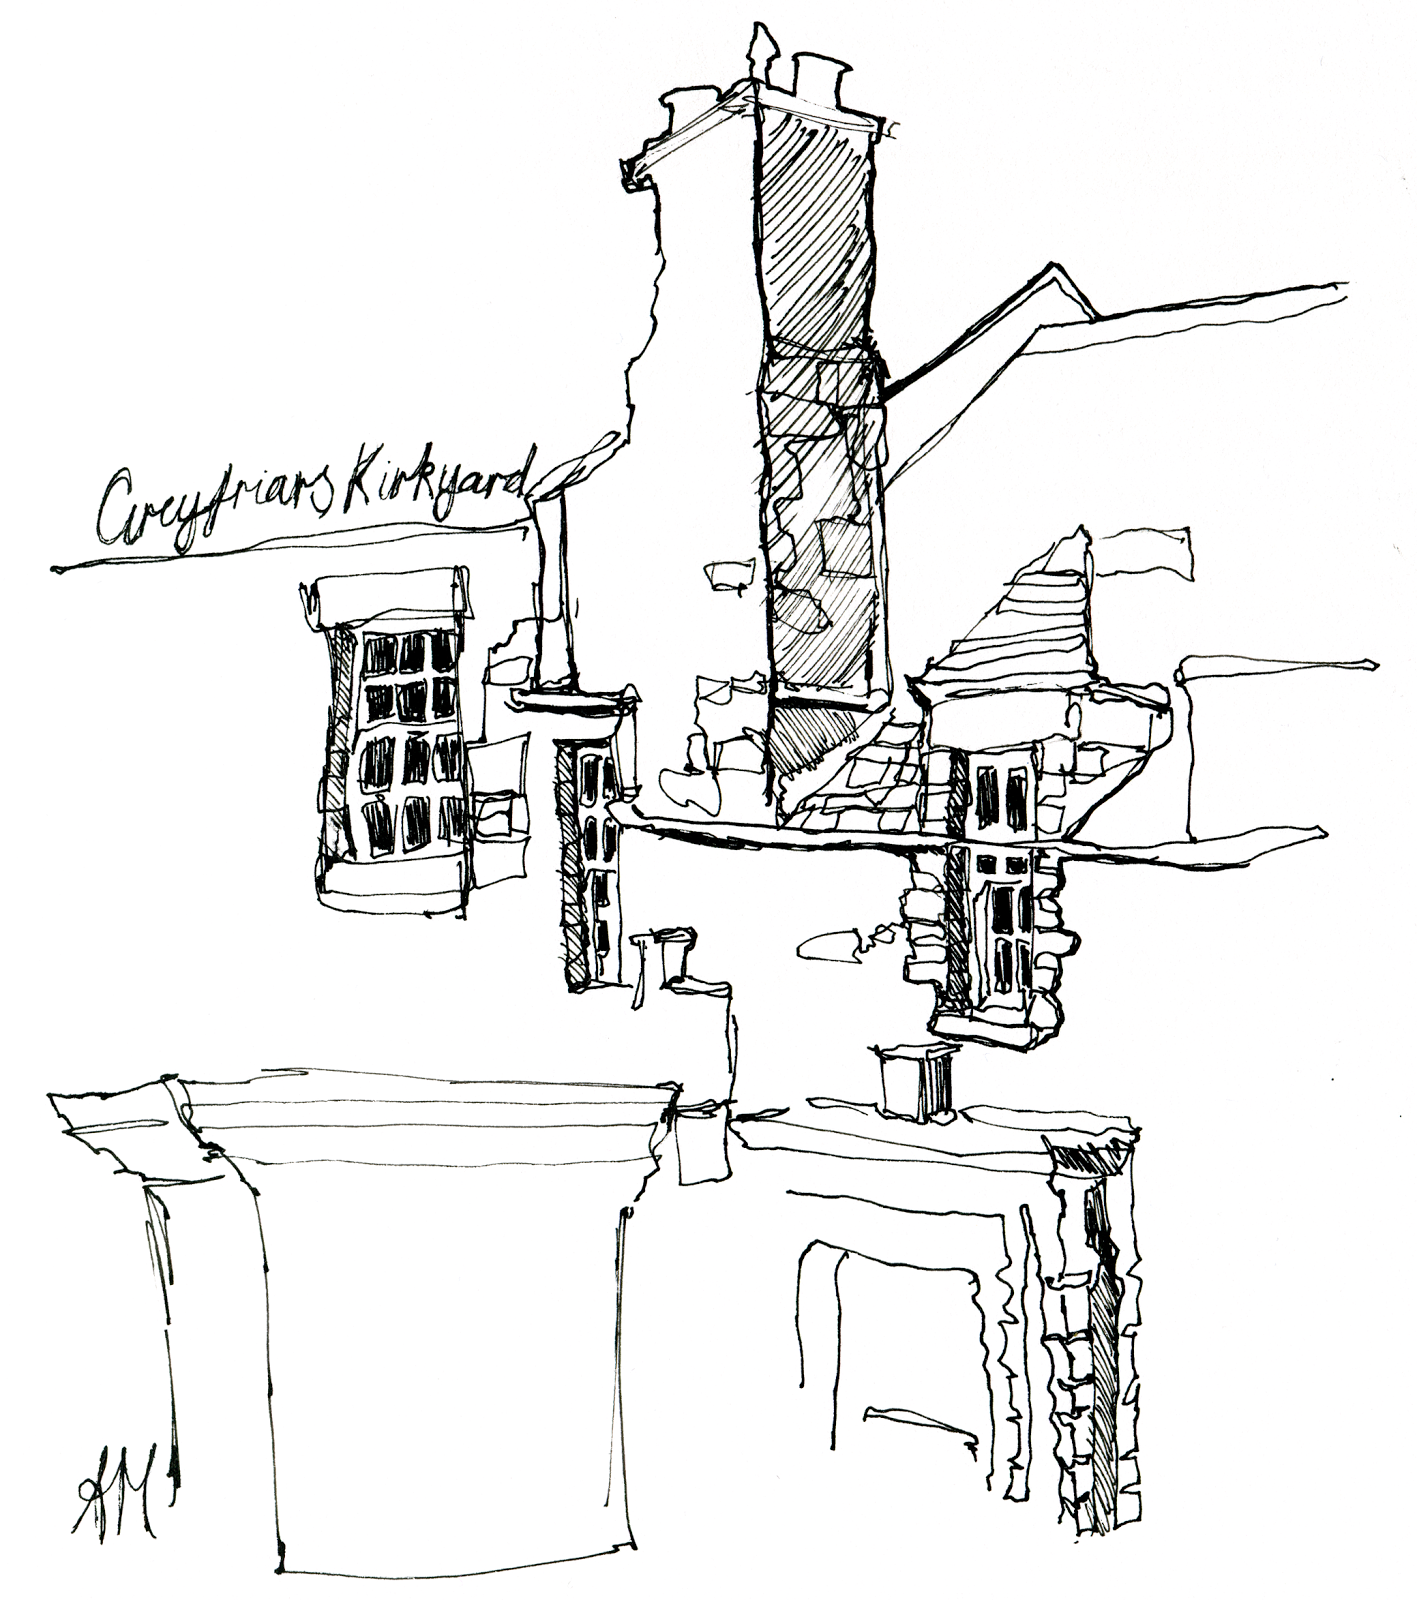 Greyfriars Kirkyard
AM